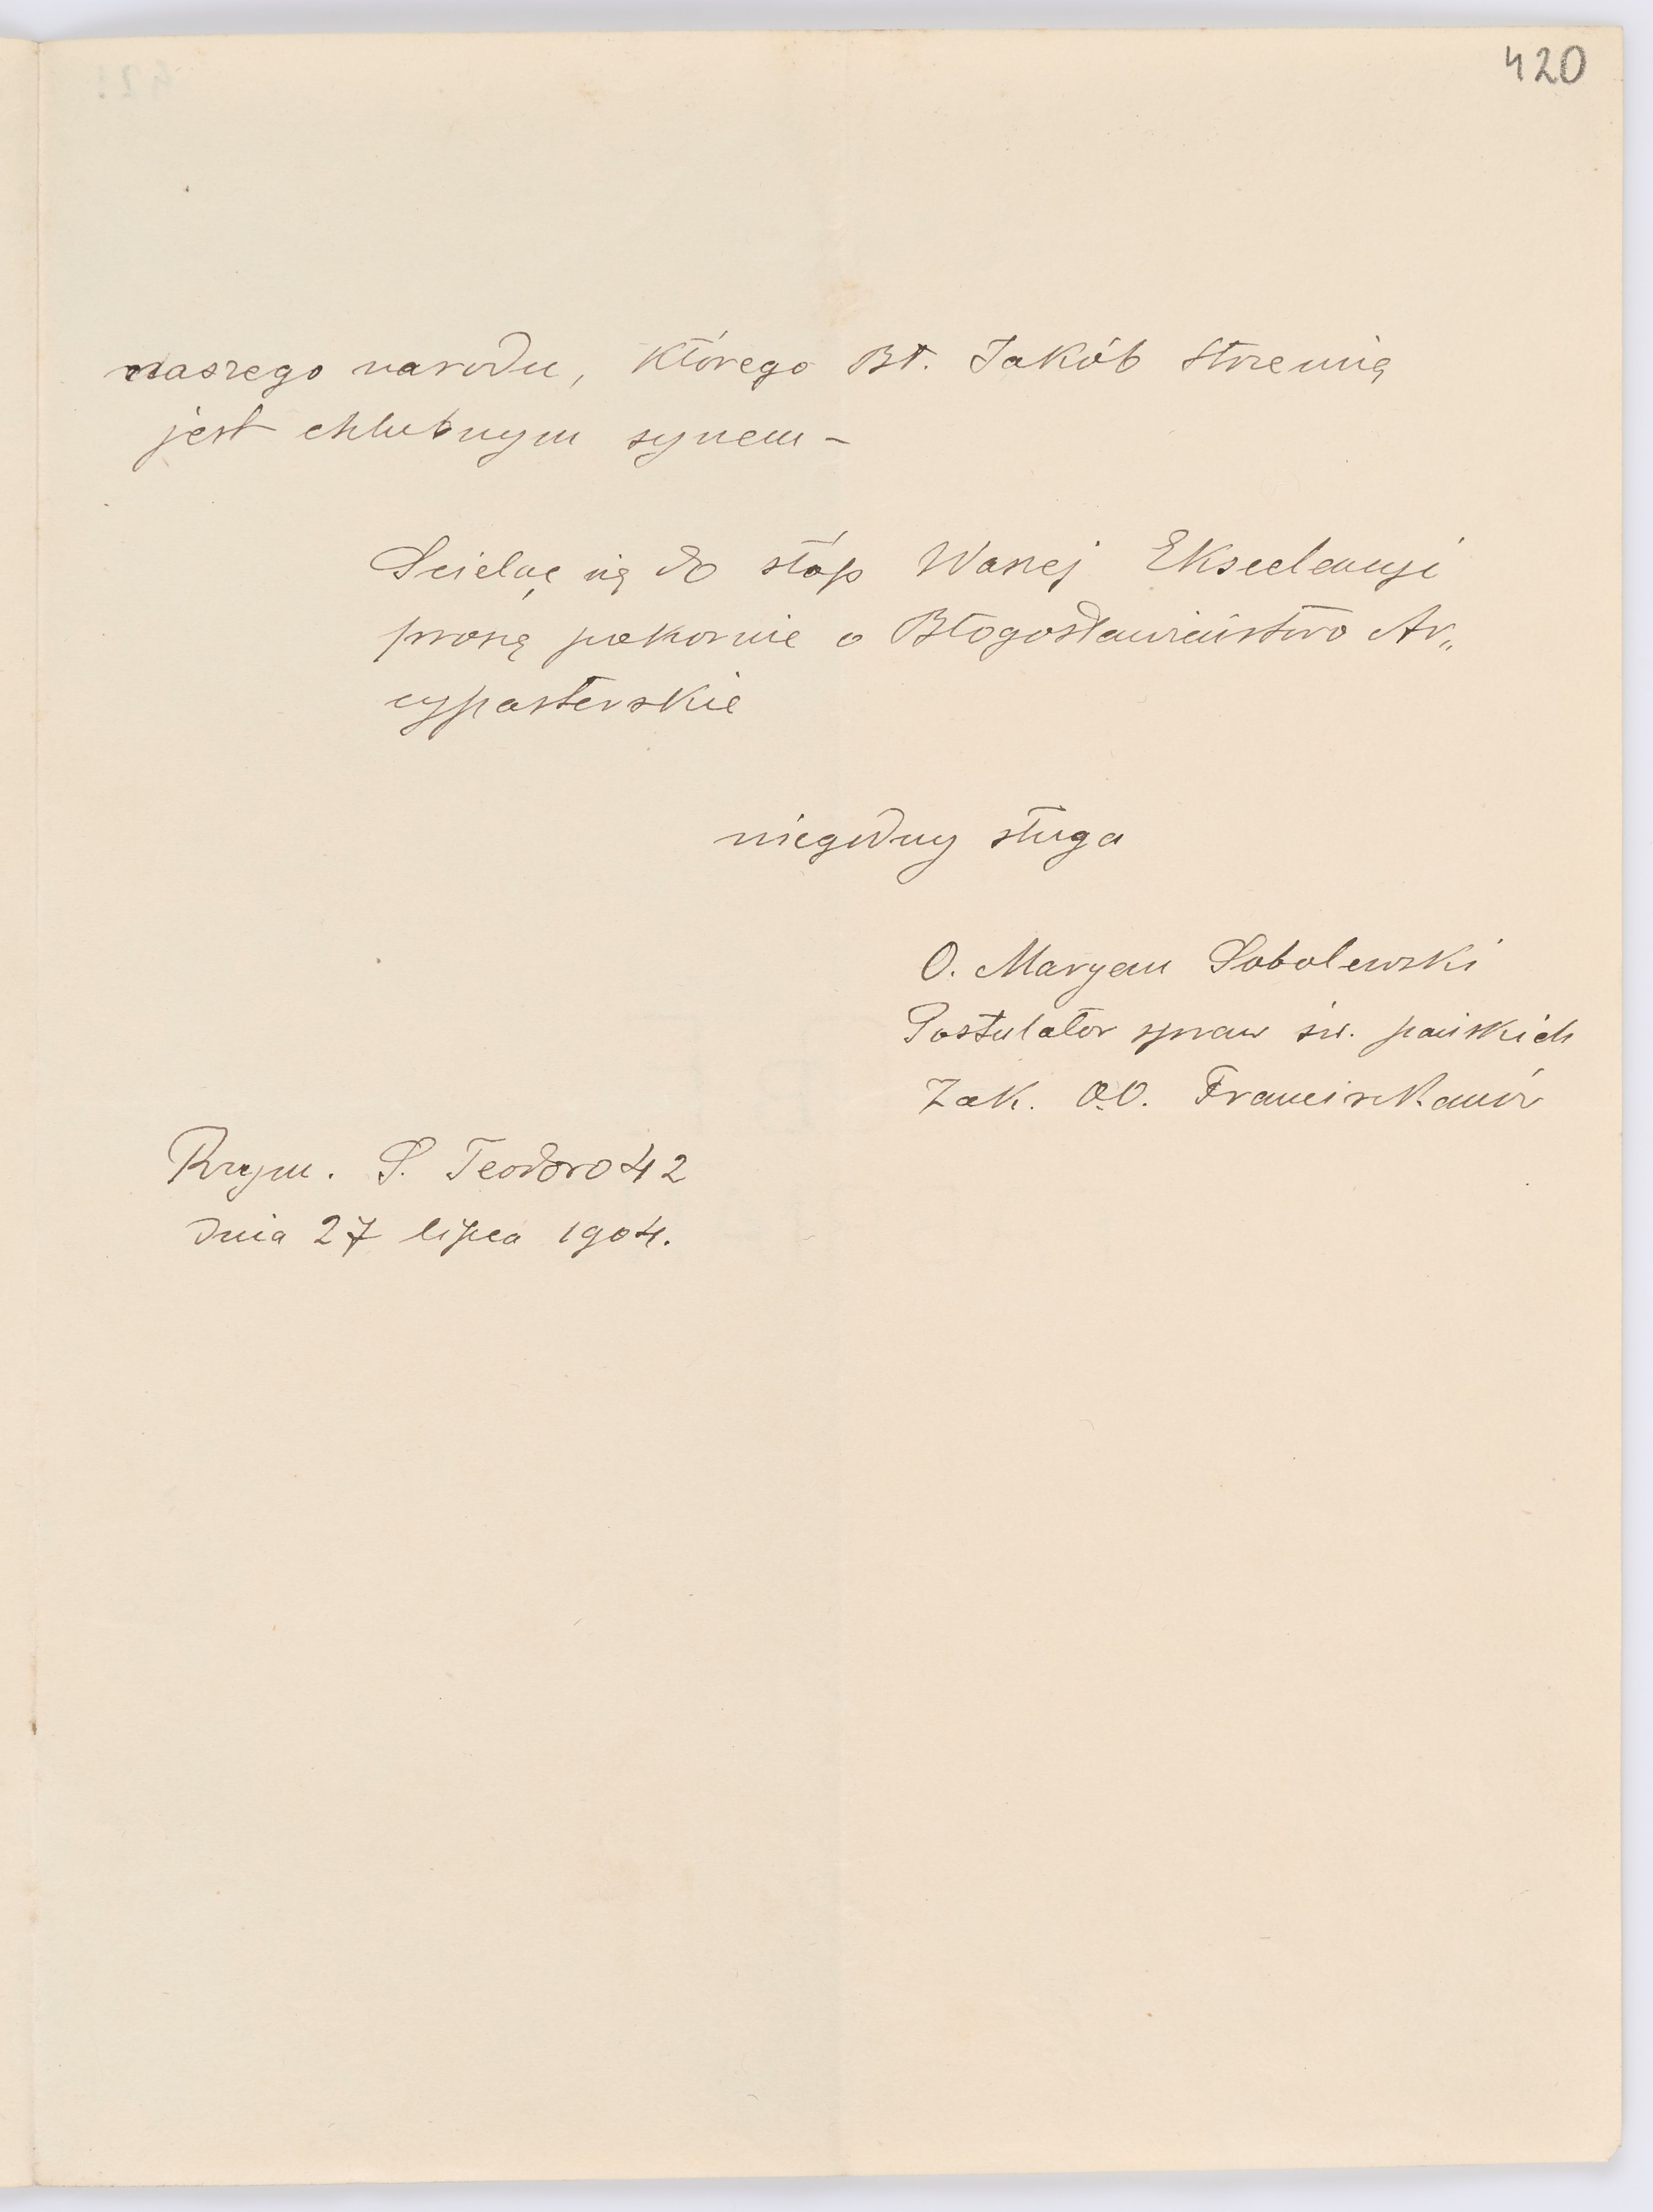 420
naszego narodu, którego Bł. Jakób Strzemię
jest chlubnym synem –
Scieląc się do stóp Waszej Ekscelencyi
proszę pokornie o Błogosławieństwo Ar„
cypasterskie
niegodny sługa
O. Maryan Sobolewski
Postulator spraw św. pańskich
Zak. OO. Franciszkanów
Rzym. S. Teodoro 42
dnia 27 lipca 1904.